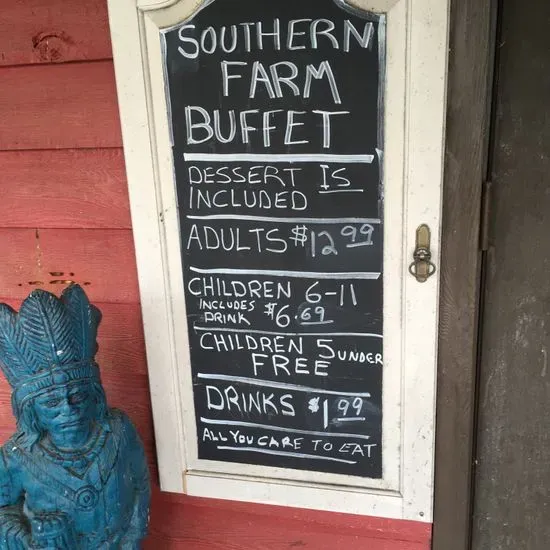 SOUTHERN
FARM
BUFFET
DESSERT IS
INCLUDED
ADULTS $12.99
CHILDREN 6-11
INCLUDES
DRINK $6.69
CHILDREN 5 UNDER
FREE
DRINKS $1.99
ALL YOU CARE TO EAT